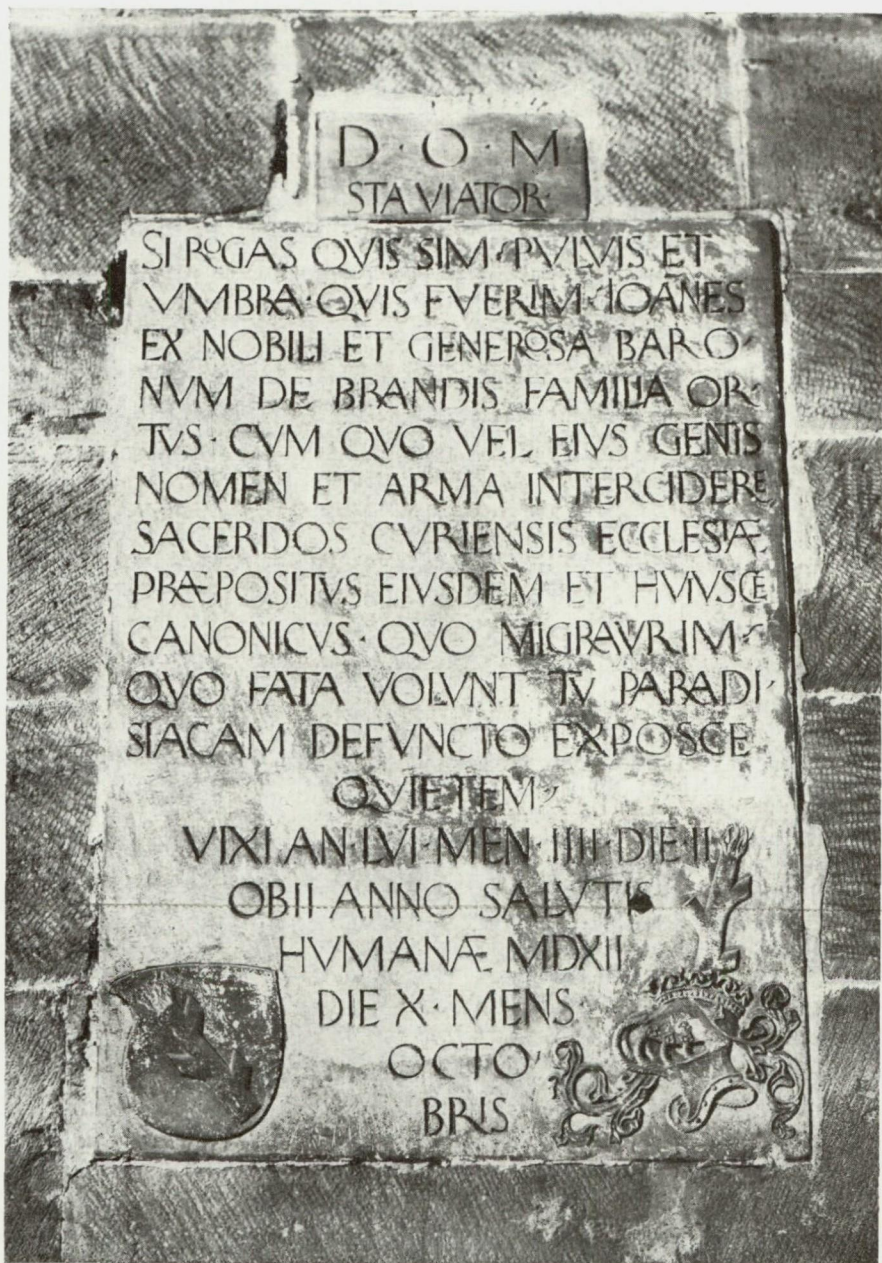 D · O · M
STA VIATOR ·
SI ROGAS QVIS SIM · PVLVIS ET
VMBRA · QVIS FVERIM · IOANES
EX NOBILI ET GENEROSA BARO ·
NVM DE BRANDIS FAMILIA OR ·
TVS · CVM QVO VEL EIVS GENTIS
NOMEN ET ARMA INTERCIDERE
SACERDOS CVRIENSIS ECCLESIÆ
PRÆPOSITVS EIVSDEM ET HVIVSCE
CANONICVS · QVO MIGRAVRIM ·
QVO FATA VOLVNT TV PARADI ·
SIACAM DEFVNCTO EXPOSCE
QVIETEM ·
VIXI AN · LVI · MEN · IIII · DIE · II
OBII ANNO SALVTIS
HVMANÆ MDXII
DIE X · MENS ·
OCTO ·
BRIS